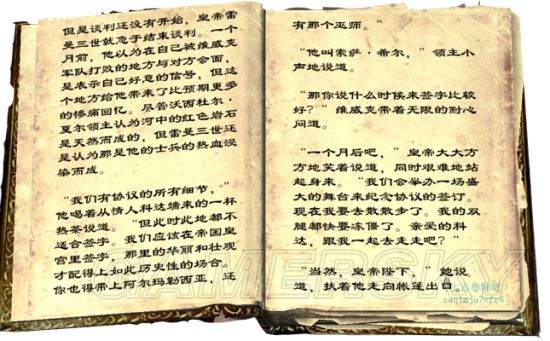 但是谈判还没有开始，皇帝雷
曼三世就急于结束谈判。一个
月前，他以为在自己被维威克
军队打败的地方与对方会面，
是表示自己好意的信号，但这
个地方给他带来了比预期更多
的惨痛回忆。尽管沃西杜尔·
夏尔领主认为河中的红色岩石
是天然而成的，但雷曼三世还
是认为那是他的士兵的热血浸
染而成。
“我们有协议的所有细节，”
他喝着从情人科达端来的一杯
热茶说道。“但此时此地都不
适合签字。我们应该在帝国皇
宫里签字，那里的华丽和壮观
才配得上如此历史性的场合。
你也得带上阿尔玛勒西亚，还
有那个巫师。”
“他叫索萨·希尔，”领主小
声地说道。
“那你说什么时候来签字比较
好？”维威克带着无限的耐心
问道。
“一个月后吧，”皇帝大大方
方地笑着说道，同时艰难地站
起身来。“我们会举办一场盛
大的舞台来纪念协议的签订。
现在我要去散散步了。我的双
腿都快要冻僵了。亲爱的科
达，跟我一起去走走吧？”
“当然，皇帝陛下，”她说
道，扶着他走向帐篷出口。
GAMERSKY
上古卷轴吧